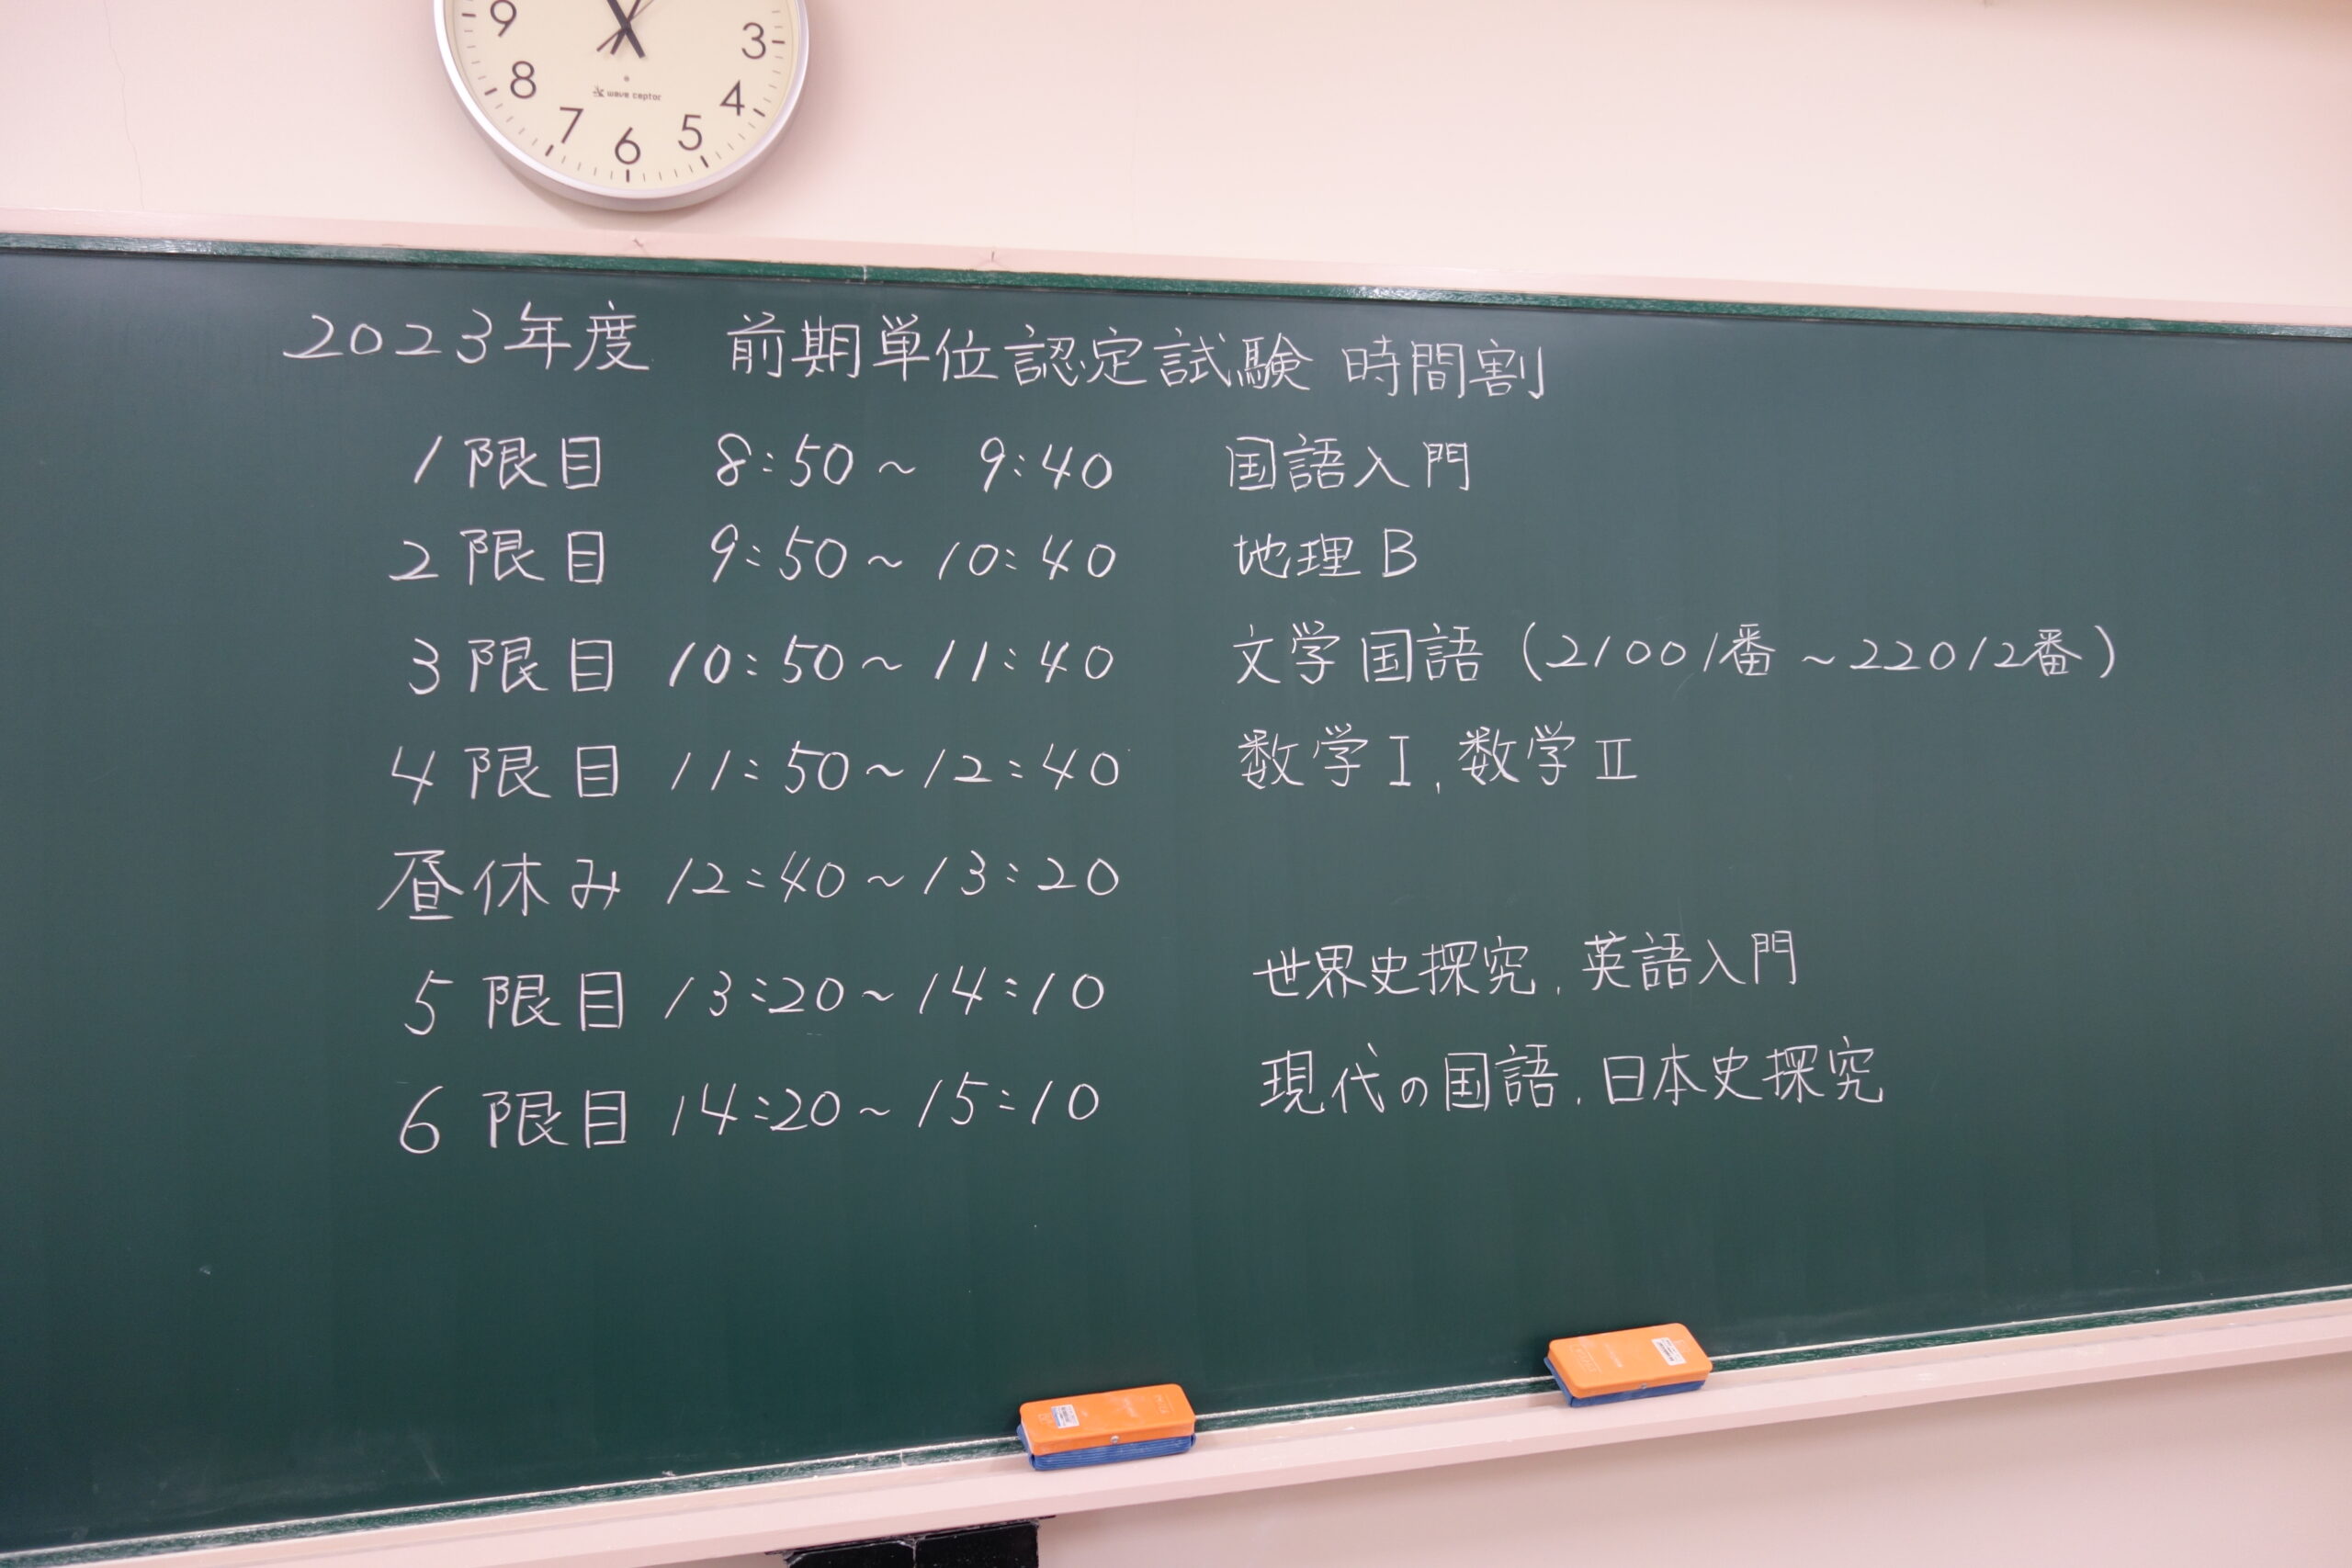 9 3
8 4
wave ceptor
7 6 5
2023年度 前期単位認定試験 時間割
1限目 8:50～ 9:40 国語入門
2限目 9:50～10:40 地理B
3限目 10:50～11:40 文学国語 (21001番～22012番)
4限目 11:50～12:40 数学I, 数学II
昼休み 12:40～13:20
5限目 13:20～14:10 世界史探究, 英語入門
6限目 14:20～15:10 現代の国語, 日本史探究